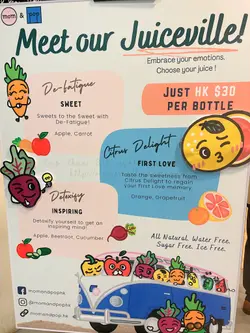 mom & pop
Meet our Juiceville!
Embrace your emotions.
Choose your juice !
De-fatigue
SWEET
Sweets to the Sweet with
De-Fatigue!
Apple, Carrot
JUST HK $30
PER BOTTLE
Citrus Delight
FIRST LOVE
Taste the sweetness from
Citrus Delight to regain
your first love memory.
Orange, Grapefruit
Detoxify
INSPIRING
Detoxify yourself to get an
inspiring mind!
Apple, Beetroot, Cucumber
All Natural. Water Free.
Sugar Free. Ice Free.
momandpophk
@momandpophk
momandpop.hk